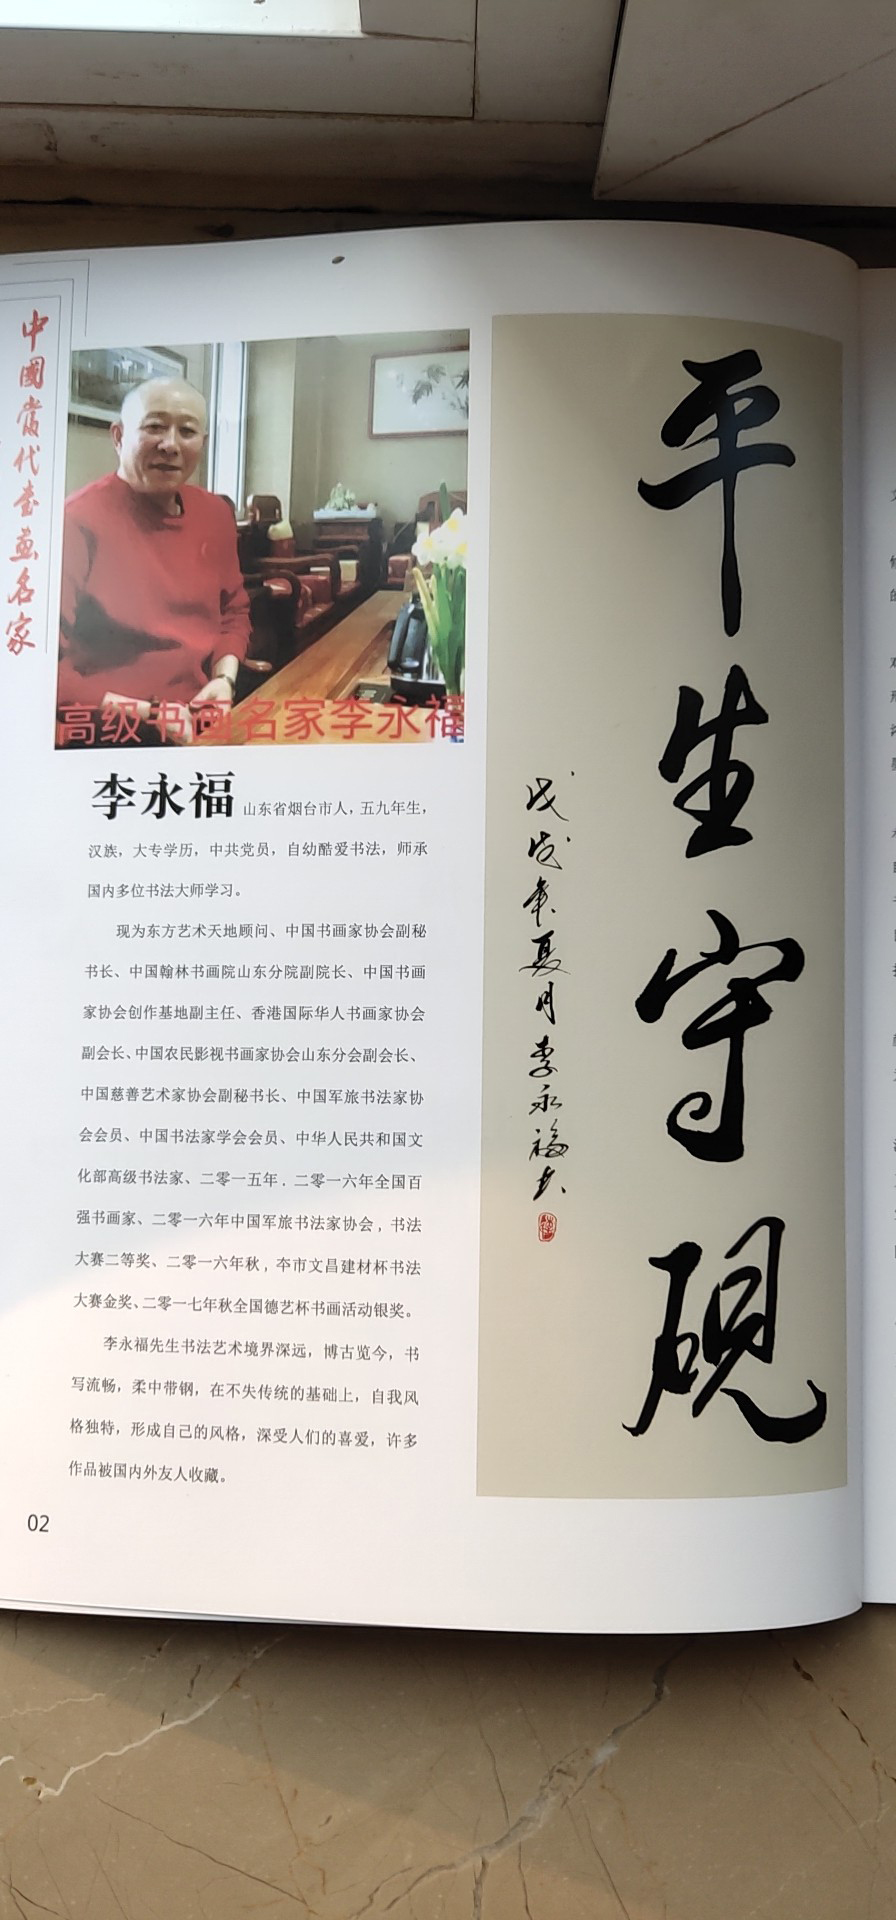 中國當代書畫名家
高级书画名家李永福
李永福 山东省烟台市人，五九年生，
汉族，大专学历，中共党员，自幼酷爱书法，师承
国内多位书法大师学习。
现为东方艺术天地顾问、中国书画家协会副秘
书长、中国翰林书画院山东分院副院长、中国书画
家协会创作基地副主任、香港国际华人书画家协会
副会长、中国农民影视书画家协会山东分会副会长、
中国慈善艺术家协会副秘书长、中国军旅书法家协
会会员、中国书法家学会会员、中华人民共和国文
化部高级书法家、二零一五年．二零一六年全国百
强书画家、二零一六年中国军旅书法家协会，书法
大赛二等奖、二零一六年秋，夲市文昌建材杯书法
大赛金奖、二零一七年秋全国德艺杯书画活动银奖。
李永福先生书法艺术境界深远，博古览今，书
写流畅，柔中带钢，在不失传统的基础上，自我风
格独特，形成自己的风格，深受人们的喜爱，许多
作品被国内外友人收藏。
02
平生守砚
戊戌年夏月李永福书